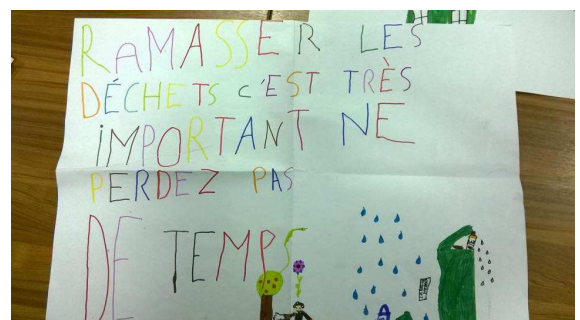 RAMASSER LES
DÉCHETS C'EST TRÈS
IMPORTANT NE
PERDEZ PAS
DE TEMPS